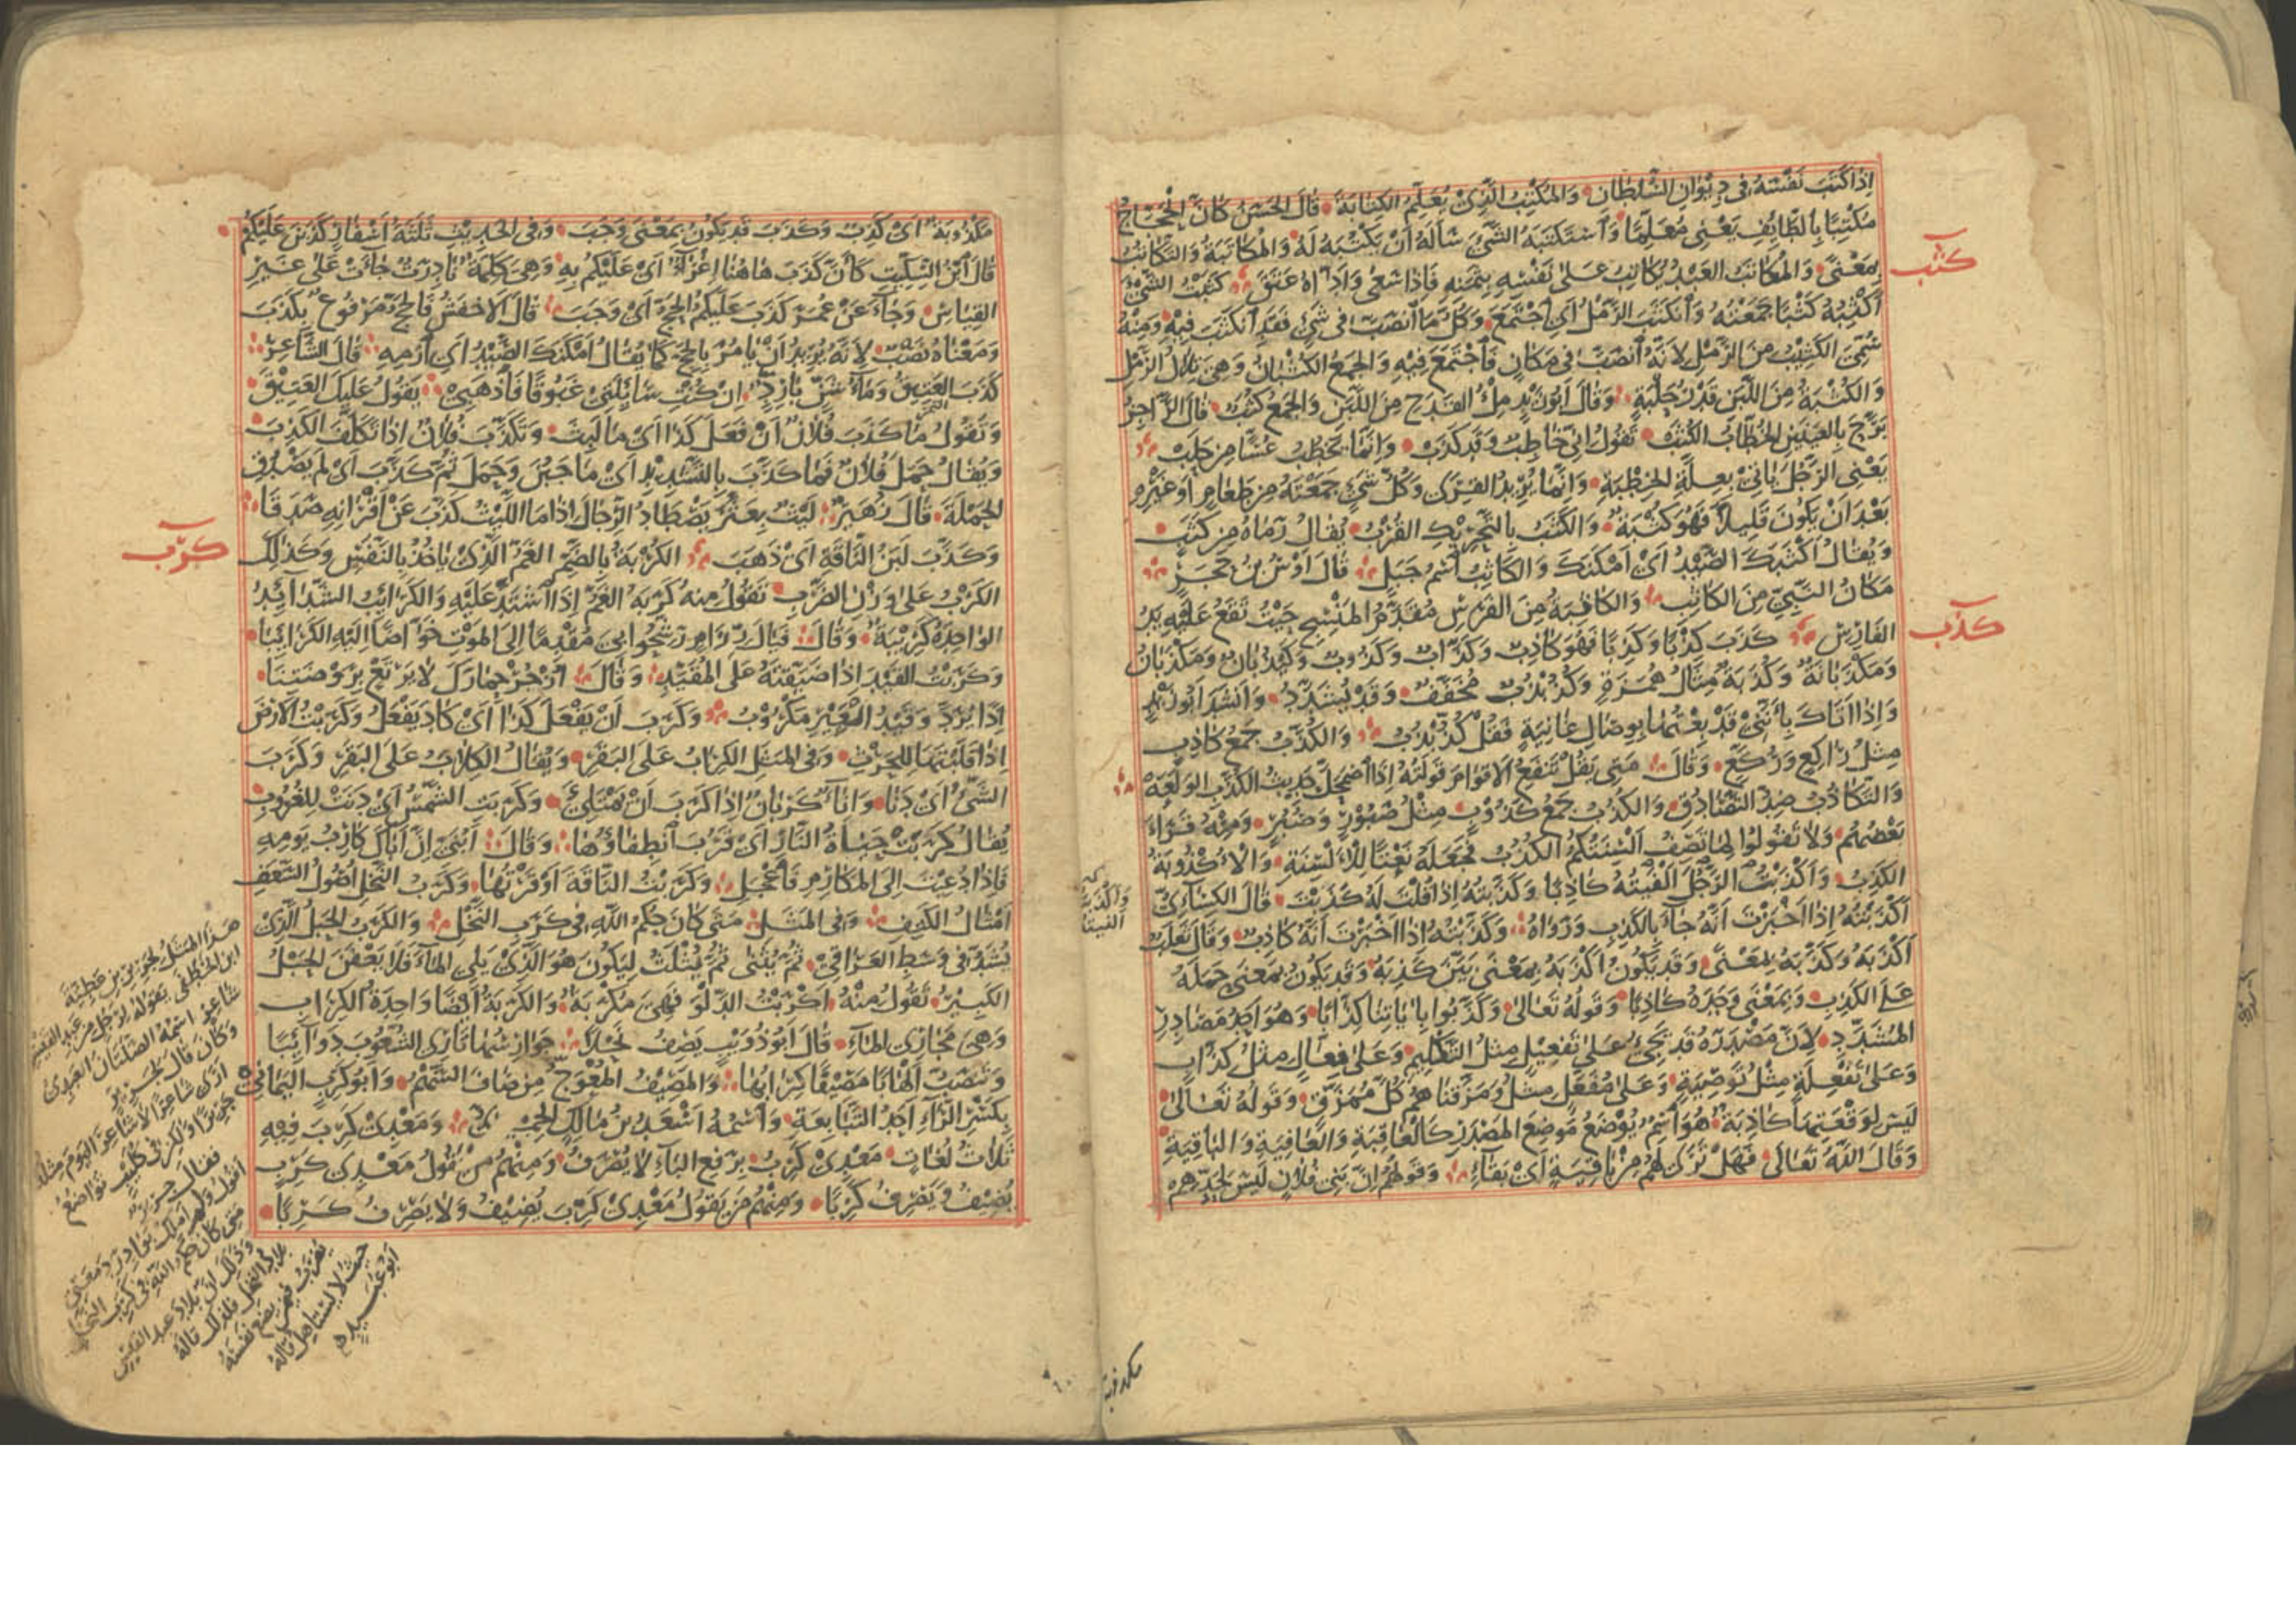 اِذَا كَتَبَ نَفْسَهُ فى دِيْوَانِ السُّلْطَان وَالمُكْتِبُ الَّذِىْ يُعَلِّمُ الكِتَابَةَ قَالَ الحَسَنُ كَانَ الحَجَّاجُ
مُكْتِبًا بِالطَّائِفِ يَعْنِى مُعَلِّمًا وَاسْتَكْتَبَهُ الشَّىْءَ سَأَلَهُ اَنْ يَكْتُبَهُ لَهُ وَالمُكَاتَبَةُ وَالتَّكَاتُبُ
كثب
بِمَعْنًى وَالمُكَاتَبُ العَبْدُ يُكَاتِبُ عَلى نَفْسِهِ بِثَمَنِهِ فَاِذَا سَعى وَاَدَّاهُ عَتَقَ كَثَبْتُ الشَّىْءَ
اَكْثِبُهُ كَثْبًا جَمَعْتُهُ وَانْكَثَبَ الرَّمْلُ اَىِ اجْتَمَعَ وَكُلُّ مَا انْصَبَّ فى شَىْءٍ فَقَدِ انْكَثَبَ فِيْهِ وَمِنْهُ
سُمِّىَ الكَثِيْبُ مِنَ الرَّمْلِ لِاَنَّهُ انْصَبَّ فى مَكَانٍ فَاجْتَمَعَ فِيْهِ وَالجَمْعُ الكُثْبَانُ وَهِىَ تِلَالُ الرَّمْلِ
وَالكُثْبَةُ مِنَ اللَّبَنِ قَدْرُ حَلْبَةٍ وَقَالَ اَبُوْ زَيْدٍ مِلْءُ القَدَحِ مِنَ اللَّبَنِ وَالجَمْعُ كُثَبٌ قَالَ الرَّاجِزُ
بَرَّحَ بِالعَيْنَيْنِ خُطَّابُ الكُثَبْ تَقُوْلُ اِنِّىْ خَاطِبٌ وَقَدْ كَذَبْ وَاِنَّمَا يَخْطُبُ عُسًّا مِنْ حَلَبْ
يَعْنِى الرَّجُلَ يَاْتِىْ بِعِلَّةِ الخِطْبَةِ وَاِنَّمَا يُرِيْدُ القِرَى وَكُلُّ شَىْءٍ جَمَعْتَهُ مِنْ طَعَامٍ اَوْ غَيْرِهِ
بَعْدَ اَنْ يَكُوْنَ قَلِيْلاً فَهُوَ كُثْبَةٌ وَالكَثَبُ بِالتَّحْرِيْكِ القُرْبُ يُقَالُ رَمَاهُ مِنْ كَثَبٍ
وَيُقَالُ اَكْثَبَكَ الصَّيْدُ اَىْ اَمْكَنَكَ وَالكَاثِبُ اسْمُ جَبَلٍ قَالَ اَوْسُ بْنُ حَجَرٍ
مَكَانَ النَّبِىِّ مِنَ الكَاثِبِ وَالكَاثِبَةُ مِنَ الفَرَسِ مُقَدَّمُ المَنْسِجِ حَيْثُ تَقَعُ عَلَيْهِ يَدُ
كذب
الفَارِسِ كَذَبَ كِذْبًا وَكَذِبًا فَهُوَ كَاذِبٌ وَكَذَّابٌ وَكَذُوْبٌ وَكَيْذُبَانٌ وَمَكْذَبَانٌ
وَمَكْذَبَانَةٌ وَكُذَبَةٌ مِثَالُ هُمَزَةٍ وَكُذُبْذُبٌ مُخَفَّفٌ وَقَدْ يُشَدَّدُ وَاَنْشَدَ اَبُوْ زَيْدٍ
وَاِذَا اَتَاكَ بِاَنَّنِىْ قَدْ بِعْتُهَا بِوِصَالِ غَانِيَةٍ فَقُلْ كُذُّبْذُبُ وَالكُذَّبُ جَمْعُ كَاذِبٍ
مِثْلُ رَاكِعٍ وَرُكَّعٍ وَقَالَ مَتى يَقُلْ تَنْفَعِ الاَقْوَامَ قَوْلَتُهُ اِذَا اضْمَحَلَّ حَدِيْثُ الكُذَّبِ الوَلَعَهْ
وَالتَّكَاذُبُ ضِدُّ التَّصَادُقِ وَالكُذُبُ جَمْعُ كَذُوْبٍ مِثْلُ صَبُوْرٍ وَصُبُرٍ وَمِنْهُ قَرَأَ
بَعْضُهُمْ وَلَا تَقُوْلُوْا لِمَا تَصِفُ اَلْسِنَتُكُمُ الكُذُبُ فَجَعَلَهُ نَعْتًا لِلْاَلْسِنَةِ وَالاُكْذُوْبَةُ
الكَذِبُ وَاَكْذَبْتُ الرَّجُلَ اَلْفَيْتُهُ كَاذِبًا وَكَذَّبْتُهُ اِذَا قُلْتَ لَهُ كَذَبْتَ قَالَ الكِسَائِىُّ
اَكْذَبْتُهُ اِذَا اَخْبَرْتَ اَنَّهُ جَاءَ بِالكَذِبِ وَرَوَاهُ وَكَذَّبْتُهُ اِذَا اَخْبَرْتَ اَنَّهُ كَاذِبٌ وَقَالَ ثَعْلَبٌ
اَكْذَبَهُ وَكَذَّبَهُ بِمَعْنًى وَقَدْ يَكُوْنُ اَكْذَبَهُ بِمَعْنَى بَيَّنَ كَذِبَهُ وَقَدْ يَكُوْنُ بِمَعْنَى حَمَلَهُ
عَلَى الكَذِبِ وَبِمَعْنَى وَجَدَهُ كَاذِبًا وَقَوْلُهُ تَعَالى وَكَذَّبُوا بِاٰيَاتِنَا كِذَّابًا وَهُوَ اَحَدُ مَصَادِرِ
المُشَدَّدِ لِاَنَّ مَصْدَرَهُ قَدْ يَجِىْءُ عَلى تَفْعِيْلٍ مِثْلُ التَّكْلِيْمِ وَعَلى فِعَّالٍ مِثْلُ كِذَّابٍ
وَعَلى تَفْعِلَةٍ مِثْلُ تَوْصِيَةٍ وَعَلى مُفَعَّلٍ مِثْلُ وَمَزَّقْنَاهُمْ كُلَّ مُمَزَّقٍ وَقَوْلُهُ تَعَالى
لَيْسَ لِوَقْعَتِهَا كَاذِبَةٌ هُوَ اسْمٌ يُوْضَعُ مَوْضِعَ المَصْدَرِ كَالعَاقِبَةِ وَالعَافِيَةِ وَالبَاقِيَةِ
وَقَالَ اللّٰهُ تَعَالى فَهَلْ تَرى لَهُمْ مِنْ بَاقِيَةٍ اَىْ بَقَاءٍ وَقَوْلُهُمْ اِنَّ بَنِى فُلَانٍ لَيْسَ لِحَدِّهِمْ
مكذوبة
مَكْذُوْبَةٌ اَىْ كَذِبٌ وَكَذَبَ قَدْ يَكُوْنُ بِمَعْنَى وَجَبَ وَفى الحَدِيْثِ ثَلٰثَةُ اَسْفَارٍ كَذَبْنَ عَلَيْكُمْ
قَالَ ابْنُ السِّكِّيْتِ كَأَنَّ كَذَبَ هَاهُنَا اِغْرَاءٌ اَىْ عَلَيْكُمْ بِهِ وَهِىَ كَلِمَةٌ نَادِرَةٌ جَاءَتْ عَلى غَيْرِ
القِيَاسِ وَجَاءَ عَنْ عُمَرَ كَذَبَ عَلَيْكُمُ الحَجُّ اَىْ وَجَبَ قَالَ الاَخْفَشُ فَالحَجُّ مَرْفُوْعٌ بِكَذَبَ
وَمَعْنَاهُ نَصْبٌ لِاَنَّهُ يُرِيْدُ اَنْ يَاْمُرَ بِالحَجِّ كَمَا يُقَالُ اَمْكَنَكَ الصَّيْدُ اَىِ ارْمِهِ قَالَ الشَّاعِرُ
كَذَبَ العَتِيْقُ وَمَاءُ شَنٍّ بَارِدٍ اِنْ كُنْتِ سَائِلَتِىْ غَبُوْقًا فَاذْهَبِىْ يَقُوْلُ عَلَيْكِ العَتِيْقَ
وَتَقُوْلُ مَا كَذَّبَ فُلَانٌ اَنْ فَعَلَ كَذَا اَىْ مَا لَبِثَ وَتَكَذَّبَ فُلَانٌ اِذَا تَكَلَّفَ الكَذِبَ
وَيُقَالُ حَمَلَ فُلَانٌ فَمَا كَذَّبَ بِالتَّشْدِيْدِ اَىْ مَا جَبُنَ وَحَمَلَ ثُمَّ كَذَّبَ اَىْ لَمْ يَصْدُقِ
الحَمْلَةَ قَالَ زُهَيْرٌ لَيْثٌ بِعَثَّرَ يَصْطَادُ الرِّجَالَ اِذَا مَا اللَّيْثُ كَذَّبَ عَنْ اَقْرَانِهِ صَدَقَا
كرب
وَكَذَبَ لَبَنُ النَّاقَةِ اَىْ ذَهَبَ الكُرْبَةُ بِالضَّمِّ الغَمُّ الَّذِىْ يَاْخُذُ بِالنَّفْسِ وَكَذٰلِكَ
الكَرْبُ عَلى وَزْنِ الضَّرْبِ تَقُوْلُ مِنْهُ كَرَبَهُ الغَمُّ اِذَا اشْتَدَّ عَلَيْهِ وَالكَرَائِبُ الشَّدَائِدُ
الوَاحِدَةُ كَرِيْبَةٌ وَقَالَ فَيَالَ رِزَامٍ رَشِّحُوا بِىَ مُقْدِمًا اِلَى المَوْتِ خَوَّاضًا اِلَيْهِ الكَرَائِبَا
وَكَرَبْتُ القَيْدَ اِذَا ضَيَّقْتَهُ عَلَى المُقَيَّدِ وَقَالَ اُزْجُرْ حِمَارَكَ لَا يَرْتَعْ بِرَوْضَتِنَا
اِذًا يُرَدُّ وَقَيْدُ العَيْرِ مَكْرُوْبُ وَكَرَبَ اَنْ يَفْعَلَ كَذَا اَىْ كَادَ يَفْعَلُ وَكَرَبْتُ الاَرْضَ
اِذَا قَلَبْتَهَا لِلْحَرْثِ وَفى المَثَلِ الكِرَابُ عَلَى البَقَرِ وَيُقَالُ الكِلَابُ عَلَى البَقَرِ وَكَرَبَ
الشَّىْءُ اَىْ دَنَا وَاِنَاءٌ كَرْبَانُ اِذَا كَرَبَ اَنْ يَمْتَلِئَ وَكَرَبَتِ الشَّمْسُ اَىْ دَنَتْ لِلغُرُوْبِ
يُقَالُ كَرَبَتْ حَيَاةُ النَّارِ اَىْ قَرُبَ انْطِفَاؤُهَا وَقَالَ اَبُنَىَّ اِنَّ اَبَاكَ كَارِبُ يَوْمِهِ
فَاِذَا دُعِيْتَ اِلَى المَكَارِمِ فَاعْجَلِ وَكَرَبْتُ النَّاقَةَ اَوْقَرْتُهَا وَكَرَبُ النَّخْلِ اُصُوْلُ السَّعَفِ
اَمْثَالُ الكَتِفِ وَفى المَثَلِ مَتى كَانَ حُكْمُ اللّٰهِ فى كَرَبِ النَّخْلِ وَالكَرَبُ الحَبْلُ الَّذِىْ
يُشَدُّ فى وَسَطِ العَرَاقِىْ ثُمَّ يُثْنى ثُمَّ يُثَلَّثُ لِيَكُوْنَ هُوَ الَّذِىْ يَلِى المَاءَ فَلَا يَعْفَنَ الحَبْلُ
الكَبِيْرُ تَقُوْلُ مِنْهُ اَكْرَبْتُ الدَّلْوَ فَهِىَ مُكْرَبَةٌ وَالكَرَبَةُ اَيْضًا وَاحِدَةُ الكِرَابِ
وَهِىَ مَجَارِى المَاءِ قَالَ اَبُوْ ذُؤَيْبٍ يَصِفُ نَحْلاً جَوَارِسُهَا تَاْرِى الشُّعُوْبَ دَوَائِبًا
وَتَنْصَبُّ اَلْهَابًا مَصِيْفًا كِرَابُهَا وَالمَصِيْفُ المُعْوَجُّ مِنْ صَافَ السَّهْمُ وَاَبُوْ كَرِبٍ اليَمَانِىْ
بِكَسْرِ الرَّاءِ اَحَدُ التَّبَابِعَةِ وَاسْمُهُ اَسْعَدُ بْنُ مَالِكٍ الحِمْيَرِىُّ وَمَعْدِىْ كَرِبَ فِيْهِ
ثَلَاثُ لُغَاتٍ مَعْدِىْ كَرِبُ بِرَفْعِ البَاءِ لَا يُصْرَفُ وَمِنْهُمْ مَنْ يَقُوْلُ مَعْدِىْ كَرِبٍ
يُضِيْفُ وَيَصْرِفُ كَرِبًا وَمِنْهُمْ مَنْ يَقُوْلُ مَعْدِىْ كَرِبَ يُضِيْفُ وَلَا يَصْرِفُ كَرِبًا
هَذَا المَثَلُ لِجَرِيْرِ بْنِ عَطِيَّةَ
ابْنِ الخَطَفى يَقُوْلُهُ لِرَجُلٍ مِنْ عَبْدِ القَيْسِ
شَاعِرٍ اسْمُهُ الصَّلَتَانُ العَبْدِىُّ
وَكَانَ قَالَ لِجَرِيْرٍ
اَرى شَاعِرًا لَا شَاعِرَ اليَوْمَ مِثْلُهُ
جَرِيْرٌ وَلٰكِنْ فى كُلَيْبٍ تَوَاضُعُ
فقال جَرِيْرٌ
اَقُوْلُ وَلَمْ اَمْلِكْ بَوَادِرَ دَمْعَتِىْ
مَتى كَانَ حُكْمُ اللّٰهِ فى كَرَبِ النَّخْلِ
وَذٰلِكَ اَنَّ بِلَادَ عَبْدِ القَيْسِ
بلادُ النخل فلذلك قالهُ
يُضْرَبُ فِيْمَنْ يَضَعُ نَفْسَهُ
حيث لا يستاهل قالهُ
اَبُوْ عُبَيْدٍ